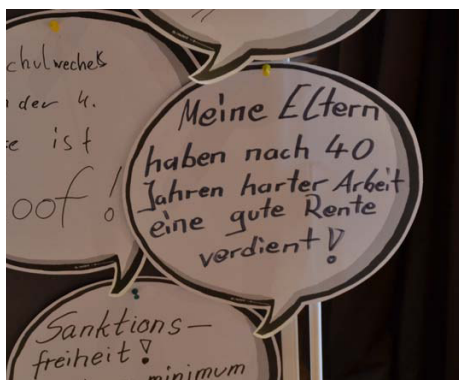 chulwechels
der 4.
ist
oof!
Meine Eltern
haben nach 40
Jahren harter Arbeit
eine gute Rente
verdient!
Sanktions-
freiheit!
minimum